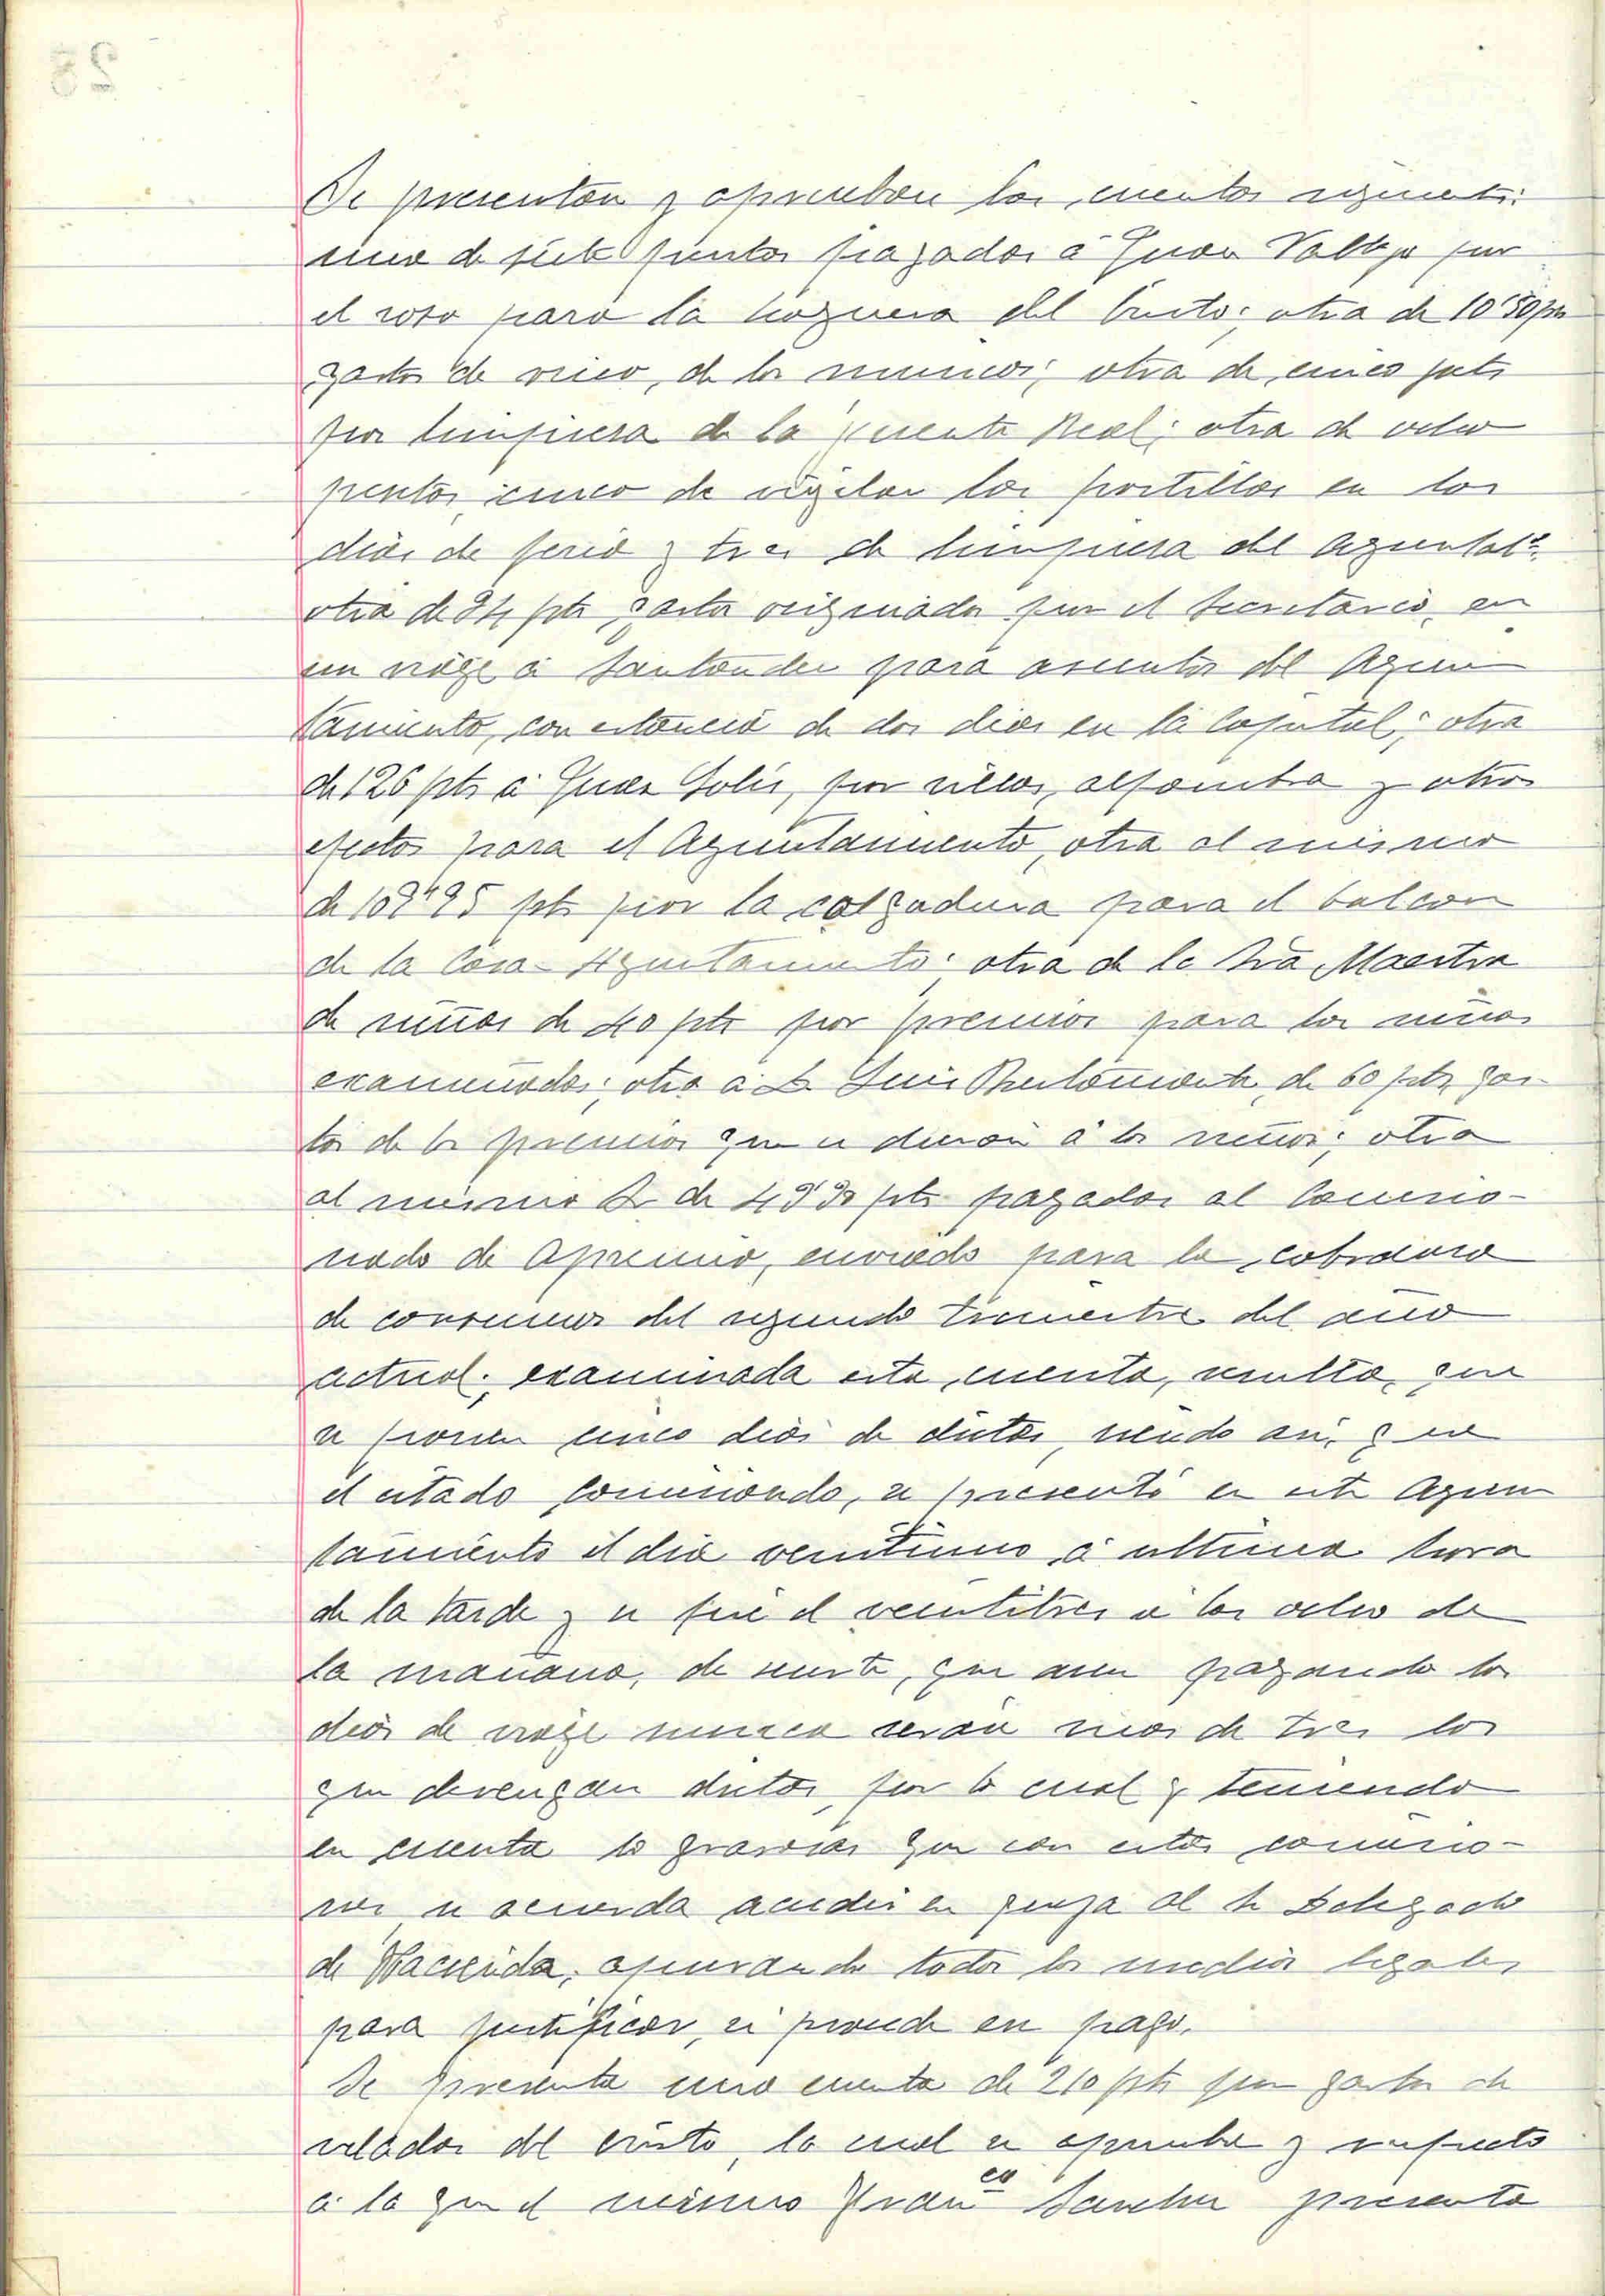 Se presentan y aprueban las cuentas siguientes:
una de siete pesetas pagadas á Juan Vallejo por
el rozo para la hoguera del Cristo; otra de 10'50 pts
gastos de vino, de los musicos; otra de cinco pts
por limpieza de la fuente Real; otra de ocho
pesetas, cinco de vigilar los portillos en los
dias de feria y tres de limpieza del Ayuntatº.
otra de 34 pts gastos originados por el Secretario, en
un viage á Santander para asuntos del Ayun
tamiento, con estancia de dos dias en la Capital; otra
de 126 pts á Juan Solis, por sillas, alfombra y otros
efectos para el Ayuntamiento, otra al mismo
de 109'95 pts por la colgadura para el balcon
de la Casa-Ayuntamiento; otra de la Srã Maestra
de niñas de 40 pts por premios para las niñas
examinadas; otra a D. Luis Bustamante, de 60 pts, gas-
tos de los premios que se dieron á los niños; otra
al mismo Sr de 49'30 pts pagadas al Comisio-
nado de Apremio, enviado para la cobranza
de consumos del segundo trimestre del año
actual; examinada esta cuenta, resulta, que
se ponen cinco dias de dietas, siendo asi, que
el citado Comisionado, se presentó en este Ayun
tamiento el dia veintiuno á ultima hora
de la tarde y se fué el veintitres á las ocho de
la mañana, de suerte, que aun pagando los
dias de viage nunca serán mas de tres los
que devengan dietas, por lo cual y teniendo
en cuenta lo gravosas que son estas comisio-
nes, se acuerda acudir en queja al Sr Delegado
de Hacienda, apurando todos los medios legales,
para justificar, si procede en pago.
Se presenta una cuenta de 210 pts por gastos de
veladas del Cristo, la cual se aprueba y respecto
á la que el mismo Franco Sanchez presenta